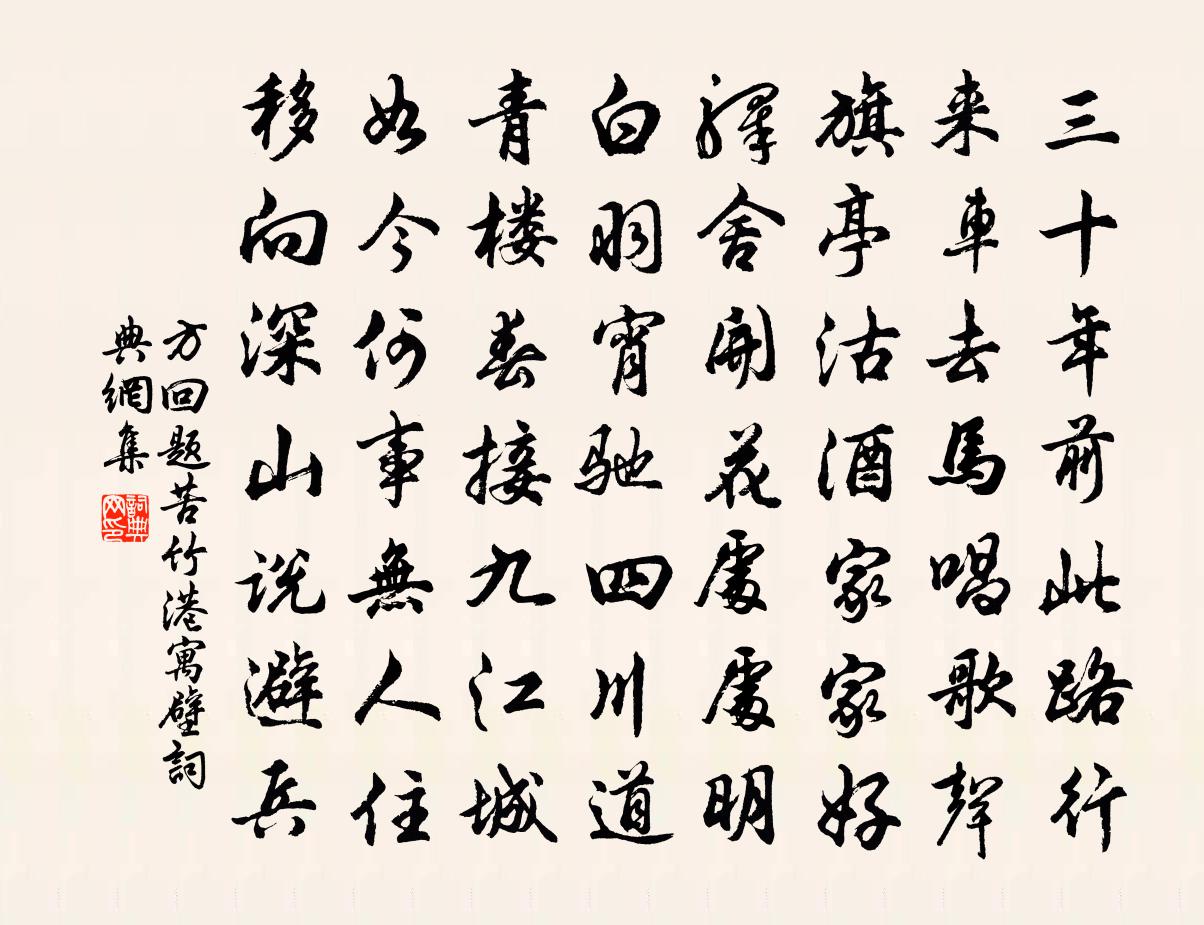 三十年前此路行
来車去馬唱歌聲
旗亭沽酒家家好
驛舍開花處處明
白羽宵馳四川道
青楼春接九江城
如今何事無人住
移向深山说避兵
方回题苦竹港寓壁詞
典網集
詞典
网印